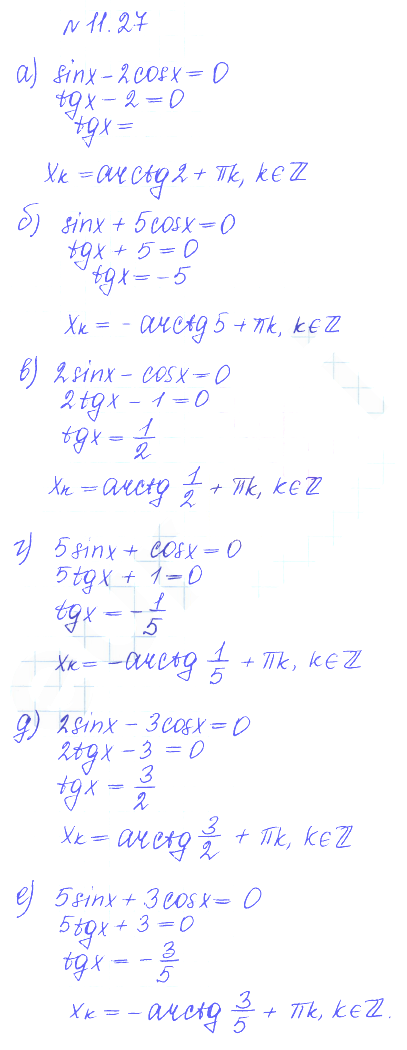 № 11.27
а) sinx − 2cosx = 0
tgx − 2 = 0
tgx =
xₖ = arctg2 + πk, k∈ℤ
б) sinx + 5cosx = 0
tgx + 5 = 0
tgx = −5
xₖ = − arctg5 + πk, k∈ℤ
в) 2sinx − cosx = 0
2tgx − 1 = 0
tgx = 1/2
xₖ = arctg 1/2 + πk, k∈ℤ
г) 5sinx + cosx = 0
5tgx + 1 = 0
tgx = − 1/5
xₖ = −arctg 1/5 + πk, k∈ℤ
д) 2sinx − 3cosx = 0
2tgx − 3 = 0
tgx = 3/2
xₖ = arctg 3/2 + πk, k∈ℤ
е) 5sinx + 3cosx = 0
5tgx + 3 = 0
tgx = − 3/5
xₖ = −arctg 3/5 + πk, k∈ℤ.